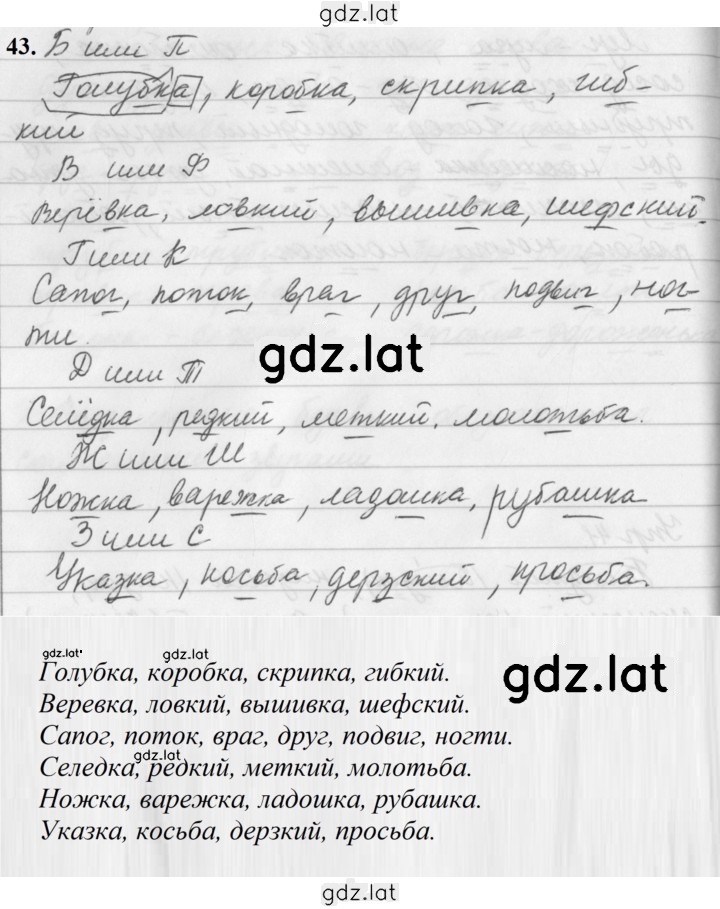 gdz.lat
43. Б или П
Голубка, коробка, скрипка, гиб-
кий
В или Ф
Верёвка, ловкий, вышивка, шефский.
Г или К
Сапог, поток, враг, друг, подвиг, ног-
ти.
gdz.lat
Д или Т
Селёдка, редкий, меткий, молотьба.
Ж или Ш
Ножка, варежка, ладошка, рубашка
З или С
Указка, косьба, дерзский, просьба.
gdz.lat
gdz.lat
gdz.lat
Голубка, коробка, скрипка, гибкий.
Веревка, ловкий, вышивка, шефский.
Сапог, поток, враг, друг, подвиг, ногти.
gdz.lat
Селедка, редкий, меткий, молотьба.
Ножка, варежка, ладошка, рубашка.
Указка, косьба, дерзкий, просьба.
gdz.lat